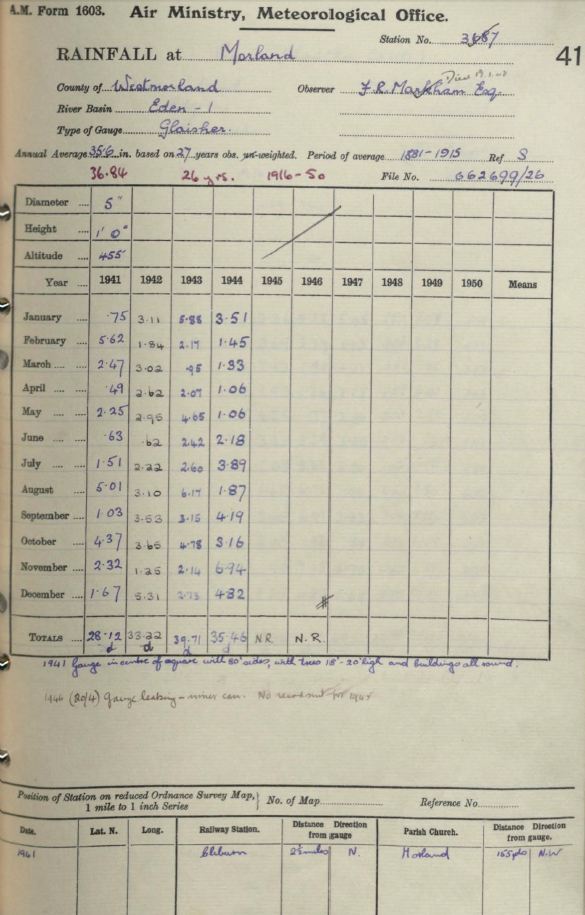 A.M. Form 1603. Air Ministry, Meteorological Office.
Station No. 3687
41
RAINFALL at Morland
Died 19.1.48
County of Westmorland Observer F.R. Markham Esq
River Basin Eden - 1
Type of Gauge Glaisher.
Annual Average 35.6 in. based on 27 years obs. un-weighted. Period of average 1881-1915 Ref S
36.84 26 yrs. 1916-50 File No. 662699/26
Diameter 5"
Height 1' 0"
Altitude 455'
Year 1941 1942 1943 1944 1945 1946 1947 1948 1949 1950 Means
January .75 3.11 5.88 3.51
February 5.62 1.84 2.17 1.45
March 2.47 3.02 .95 1.33
April .49 2.62 2.07 1.06
May 2.25 2.95 4.65 1.06
June .63 .62 2.42 2.18
July 1.51 2.22 2.60 3.89
August 5.01 3.10 6.17 1.87
September 1.03 3.53 3.15 4.19
October 4.37 3.65 4.78 3.16
November 2.32 1.25 2.14 6.94
December 1.67 5.31 2.73 4.82
TOTALS 28.12 33.22 39.71 35.46 N.R. N.R.
d d d d
1941 Gauge in centre of square with 80' sides, with trees 18'-20' high and buildings all round.
1946 (20/4) Gauge leaking - inner can. No record sent for 1945
Position of Station on reduced Ordnance Survey Map, 1 mile to 1 inch Series } No. of Map Reference No.
Date. Lat. N. Long. Railway Station. Distance Direction from gauge Parish Church. Distance Direction from gauge.
1941 Cliburn 2½ miles N. Morland 155 yds N.W